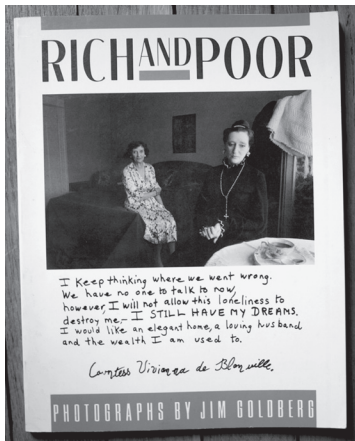 RICH AND POOR
I keep thinking where we went wrong.
We have no one to talk to now,
however, I will not allow this loneliness to
destroy me — I STILL HAVE MY DREAMS.
I would like an elegant home, a loving husband
and the wealth I am used to.
Countess Vivianna de Blonville.
PHOTOGRAPHS BY JIM GOLDBERG